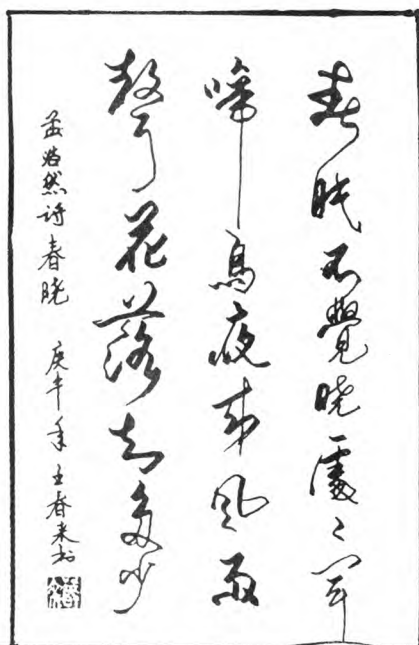 春眠不覺曉處〻聞
啼鳥夜來風雨
聲花落知多少
孟浩然詩春曉 庚午年 王春来书